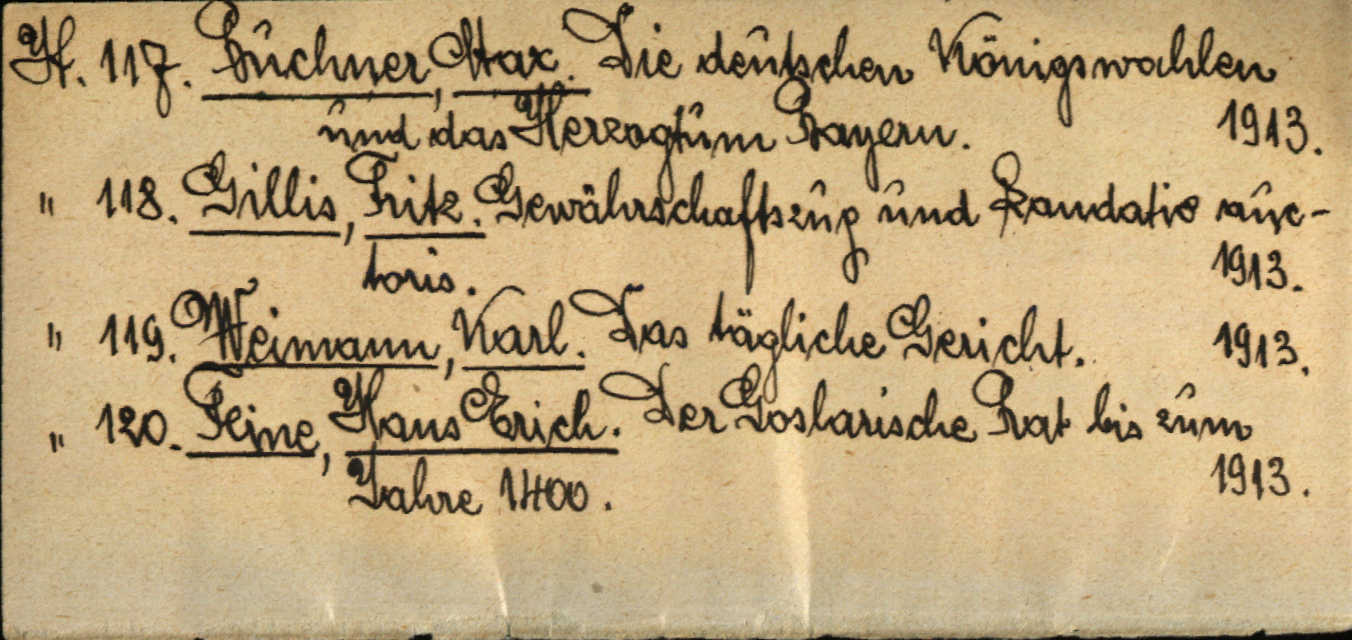 H. 117. Buchner, Max. Die deutschen Königswahlen
und das Herzogtum Bayern. 1913.
" 118. Gillis, Fritz. Gewährschaftszug und Laudatio auc-
toris. 1913.
" 119. Weimann, Karl. Das tägliche Gericht. 1913.
" 120. Feine, Hans Erich. Der Goslarische Rat bis zum
Jahre 1400. 1913.